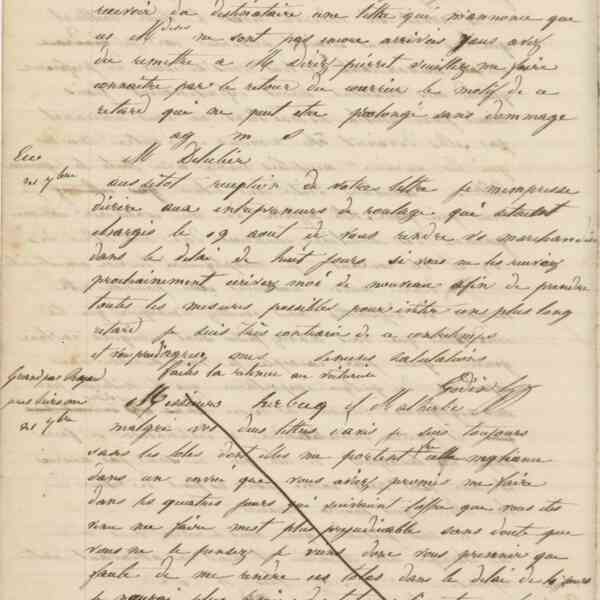 recevoir du destinataire une lettre qui m'annonce que
ces M^dises ne sont pas encore arrivées vous avez
du remettre a M pierret veuillez me faire
connaitre par le retour du courrier le motif de ce
retard qui ne peut etre prolongé sans dommage
ag m s
Eu
21 7bre
M Delulier
aussitot reception de votre lettre je m'empresse
d'écrire aux entrepreneurs de roulage qui s'étaient
chargés le 19 aout de vous rendre vos marchandises
dans le delai de huit jours si vous ne les receviez
prochainement ecrivez moi de nouveau afin de prendre
toutes les mesures possibles pour éviter un plus long
retard je suis très contrarié de ce contretemps
et vous prie d'agreer mes sinceres salutations
faites la retenue au voiturier
Godin
Grand rue
pres Guise
21 7bre
Messieurs et Malherbe
malgré vos deux lettres d'avis je suis toujours
sans les toles dont elles me portent cette negligence
dans un envoi que vous aviez promis me faire
dans les quatres jours qui suivraient l'offre que vous etes
venu me faire m'est plus prejudiciable sans doute que
vous ne le pensez je viens donc vous prevenir que
faute de me rendre ces toles dans le delai de jours
je pourrai plus